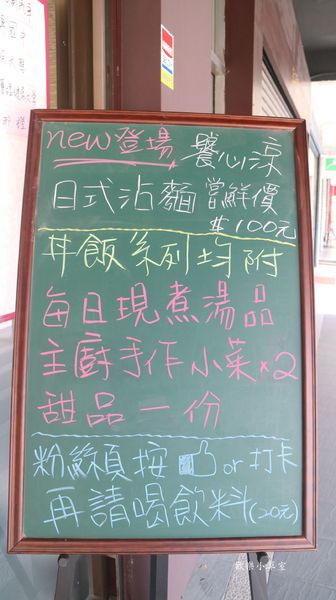 new登場 饗心涼
日式沾麵 嘗鮮價
$100元
丼飯系列均附
每日現煮湯品
主廚手作小菜×2
甜品一份
粉絲頁按 or 打卡
再請喝飲料(20元)
歡樂小事室